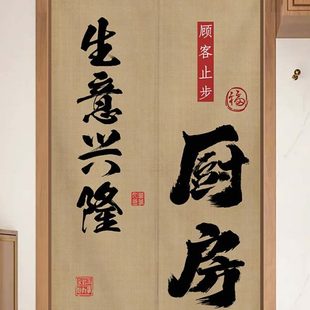 顾客止步
福
厨房
生意兴隆